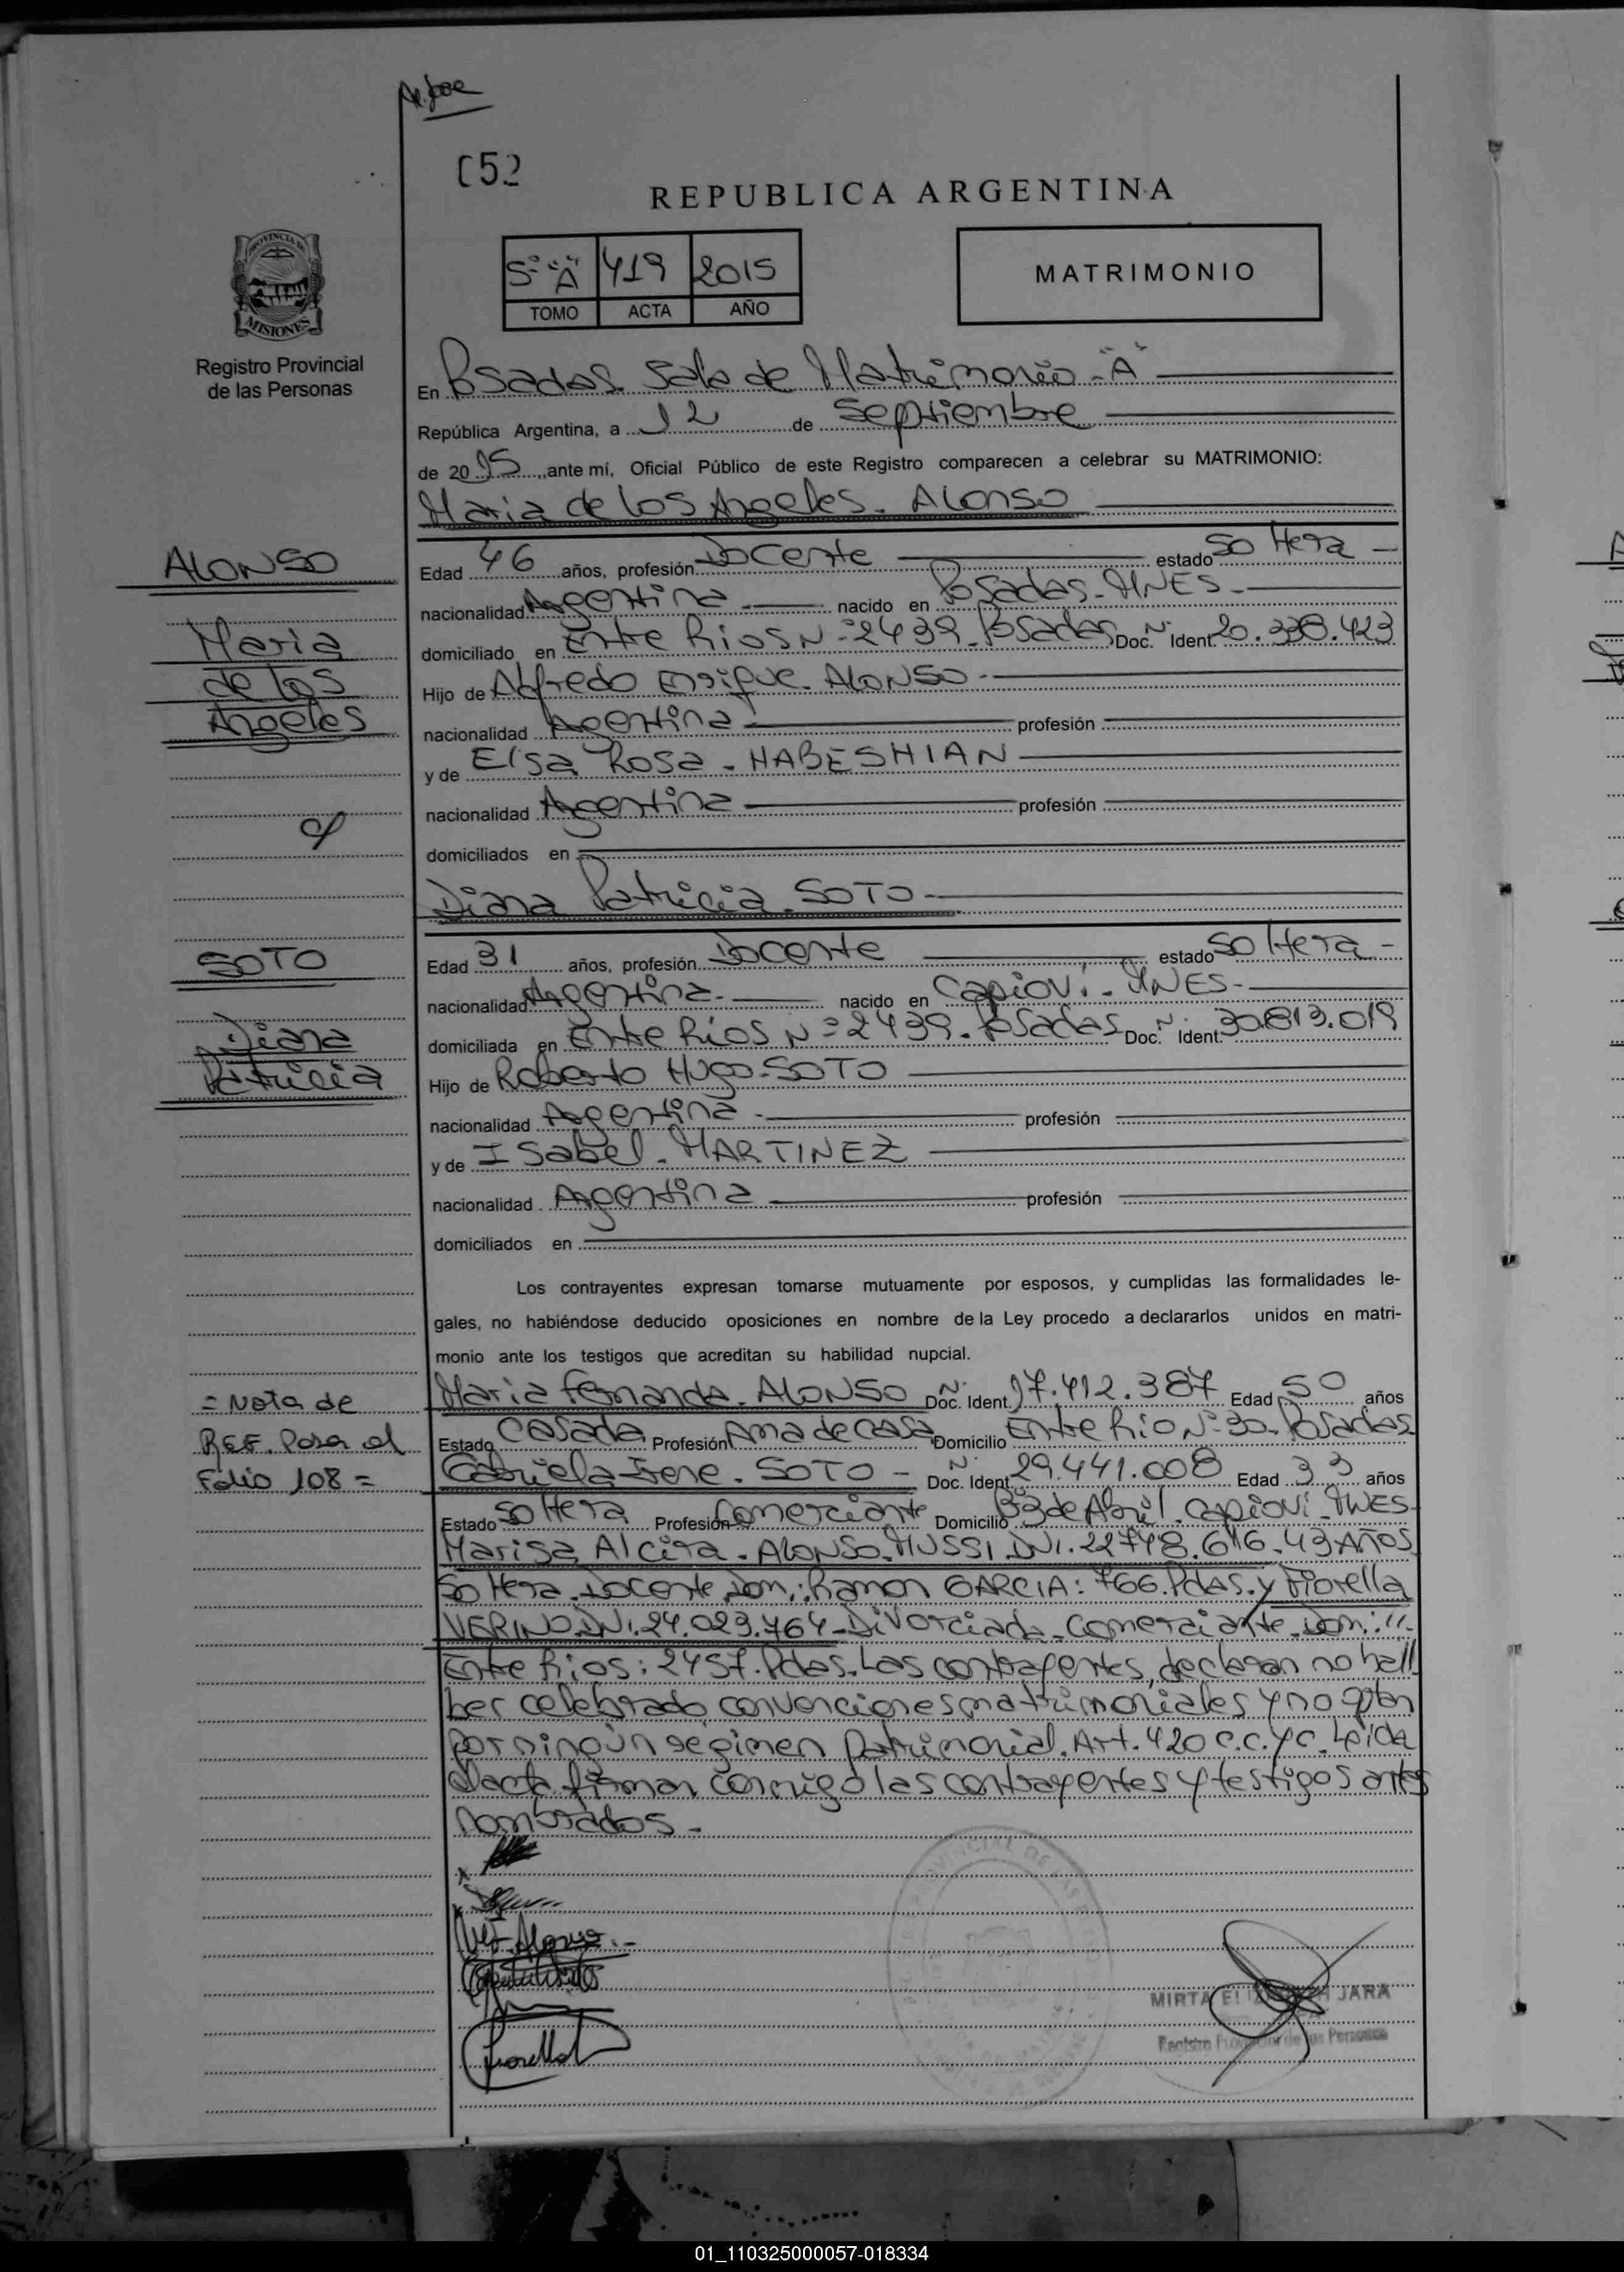 052
REPUBLICA ARGENTINA
PROVINCIA DE
MISIONES
Registro Provincial
de las Personas
Sº "A" 419 2015
TOMO ACTA AÑO
MATRIMONIO
En Posadas. Sala de Matrimonio - "A"
República Argentina, a 12 de Septiembre
de 2015, ante mí, Oficial Público de este Registro comparecen a celebrar su MATRIMONIO:
Maria de los Angeles. ALONSO
ALONSO
Maria
de los
Angeles
Edad 46 años, profesión Docente estado Soltera
nacionalidad Argentina nacido en Posadas - MNES.
domiciliado en Entre Rios Nº 2439. Posadas Doc. Nº Ident. 20.338.423
Hijo de Alfredo Enrique. ALONSO
nacionalidad Argentina profesión
y de Elsa Rosa. HABESHIAN
nacionalidad Argentina profesión
domiciliados en
Diana Patricia. SOTO
c/
SOTO
Diana
Patricia
Edad 31 años, profesión Docente estado Soltera
nacionalidad Argentina nacido en Capiovi. MNES.
domiciliada en Entre Rios Nº 2439. Posadas Doc. Nº Ident. 30.813.019
Hijo de Roberto Hugo. SOTO
nacionalidad Argentina profesión
y de Isabel. MARTINEZ
nacionalidad Argentina profesión
domiciliados en
Los contrayentes expresan tomarse mutuamente por esposos, y cumplidas las formalidades le-
gales, no habiéndose deducido oposiciones en nombre de la Ley procedo a declararlos unidos en matri-
monio ante los testigos que acreditan su habilidad nupcial.
= Nota de
REF. Para el
Folio 108 =
Maria Fernanda. ALONSO Doc. Nº Ident. 17.412.387 Edad 50 años
Estado Casada Profesión Ama de casa Domicilio Entre Rio Nº 30. Posadas
Gabriela Irene. SOTO - Doc. Nº Ident. 29.441.008 Edad 33 años
Estado Soltera Profesión Comerciante Domicilio de Abril. Capiovi. MNES.
Marisa Alcira. ALONSO. MUSSI DNI. 22.748.616. 43 AÑOS
Soltera. Docente Dom: Ramon GARCIA: 766. Pdas. y Fiorella
VERINO. DNI. 24.023.764 - Divorciada - Comerciante. Dom: //
Entre Rios: 2457. Pdas. Las contrayentes, declaran no ha//
ber celebrado convenciones matrimoniales y no optan
por ningún regimen Patrimonial. Art. 420 C.C. y C. Leida
el acta firman conmigo las contrayentes y testigos antes
nombrados.-
Alonso
Fiorella
MIRTA ELIZABETH JARA
Registro Provincial de las Personas
01_110325000057-018334